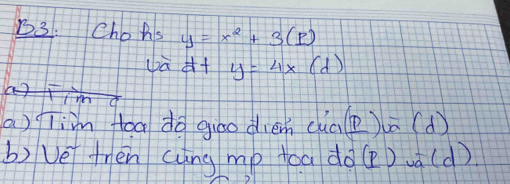 B3: Cho hs y = x² + 3 (P)
và đt y = 4x (d)
a) Tìm
a) Tìm tọa độ giao điểm của (P) và (d)
b) Vẽ trên cùng mp tọa độ (P) và (d).